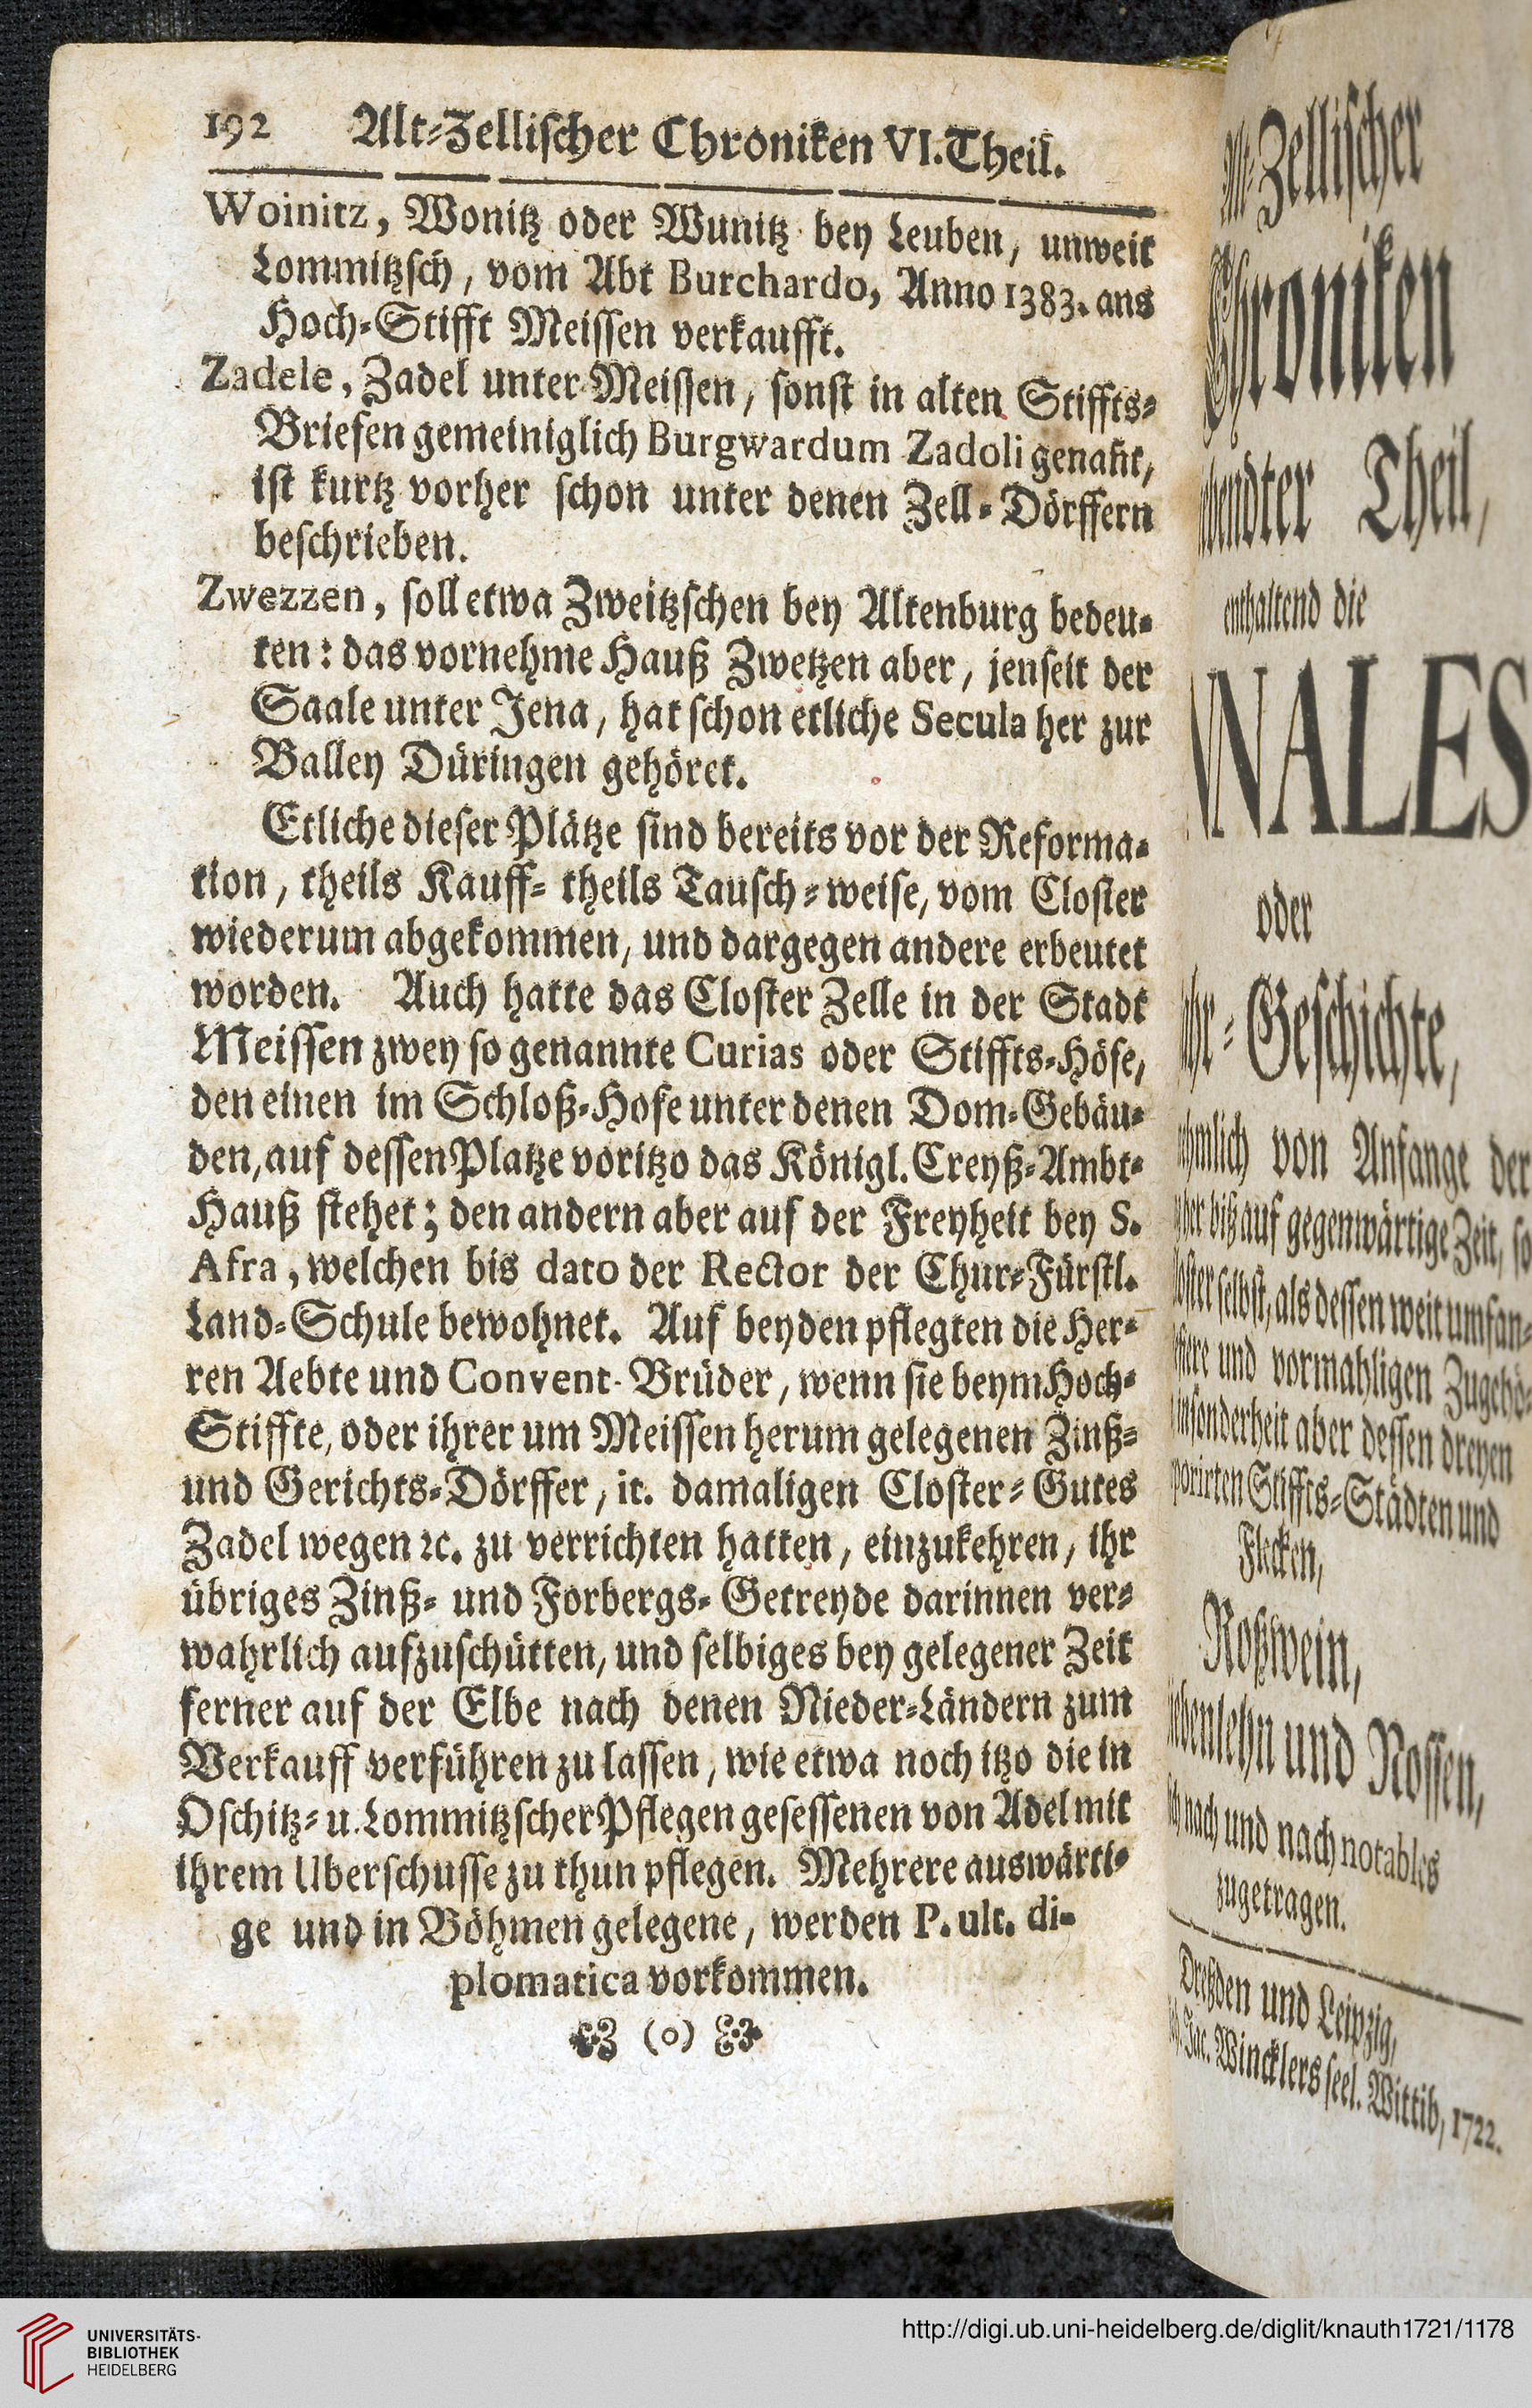 192 Alt-Zellischer Chroniken VI. Theil.
Woinitz, Wonitz oder Wunitz bey Leuben, unweit
Lommitzsch, vom Abt Burchardo, Anno 1383. ans
Hoch-Stifft Meissen verkaufft.
Zadele, Zadel unter Meissen, sonst in alten Stiffts-
Briefen gemeiniglich Burgwardum Zadoli genañt,
ist kurtz vorher schon unter denen Zell-Dörffern
beschrieben.
Zwezzen, soll etwa Zweitzschen bey Altenburg bedeu-
ten: das vornehme Hauß Zwetzen aber, jenseit der
Saale unter Jena, hat schon etliche Secula her zur
Balley Düringen gehöret.
Etliche dieser Plätze sind bereits vor der Reforma-
tion, theils Kauff- theils Tausch-weise, vom Closter
wiederum abgekommen, und dargegen andere erbeutet
worden. Auch hatte das Closter Zelle in der Stadt
Meissen zwey so genannte Curias oder Stiffts-Höfe,
den einen im Schloß-Hofe unter denen Dom-Gebäu-
den, auf dessen Platze voritzo das Königl. Creyß-Ambt-
Hauß stehet; den andern aber auf der Freyheit bey S.
Afra, welchen bis dato der Rector der Chur-Fürstl.
Land-Schule bewohnet. Auf beyden pflegten die Her-
ren Aebte und Convent-Brüder, wenn sie beym Hoch-
Stiffte, oder ihrer um Meissen herum gelegenen Zinß-
und Gerichts-Dörffer, it. damaligen Closter-Gutes
Zadel wegen ꝛc. zu verrichten hatten, einzukehren, ihr
übriges Zinß- und Forbergs-Getreyde darinnen ver-
wahrlich aufzuschütten, und selbiges bey gelegener Zeit
ferner auf der Elbe nach denen Nieder-Ländern zum
Verkauff verführen zu lassen, wie etwa noch itzo die in
Oschitz- u. Lommitzscher Pflegen gesessenen von Adel mit
ihrem Uberschusse zu thun pflegen. Mehrere auswärti-
ge und in Böhmen gelegene, werden P. ult. di-
plomatica vorkommen.
(o)
Alt-Zellischer
Chroniken
Theil,
enthaltend die
NALES
oder
Geschichte,
von Anfange der
biß auf gegenwärtige Zeit, so
selbst, als dessen weit umfan-
und vormahligen Zugehö-
insonderheit aber dessen dreyen
Stiffts-Städten und
Flecken,
Roßwein,
und Nossen,
nach und nach notables
zugetragen.
Dreßden und Leipzig,
Jac. Wincklers seel. Wittib, 1722.
UNIVERSITÄTS-
BIBLIOTHEK
HEIDELBERG
http://digi.ub.uni-heidelberg.de/diglit/knauth1721/1178